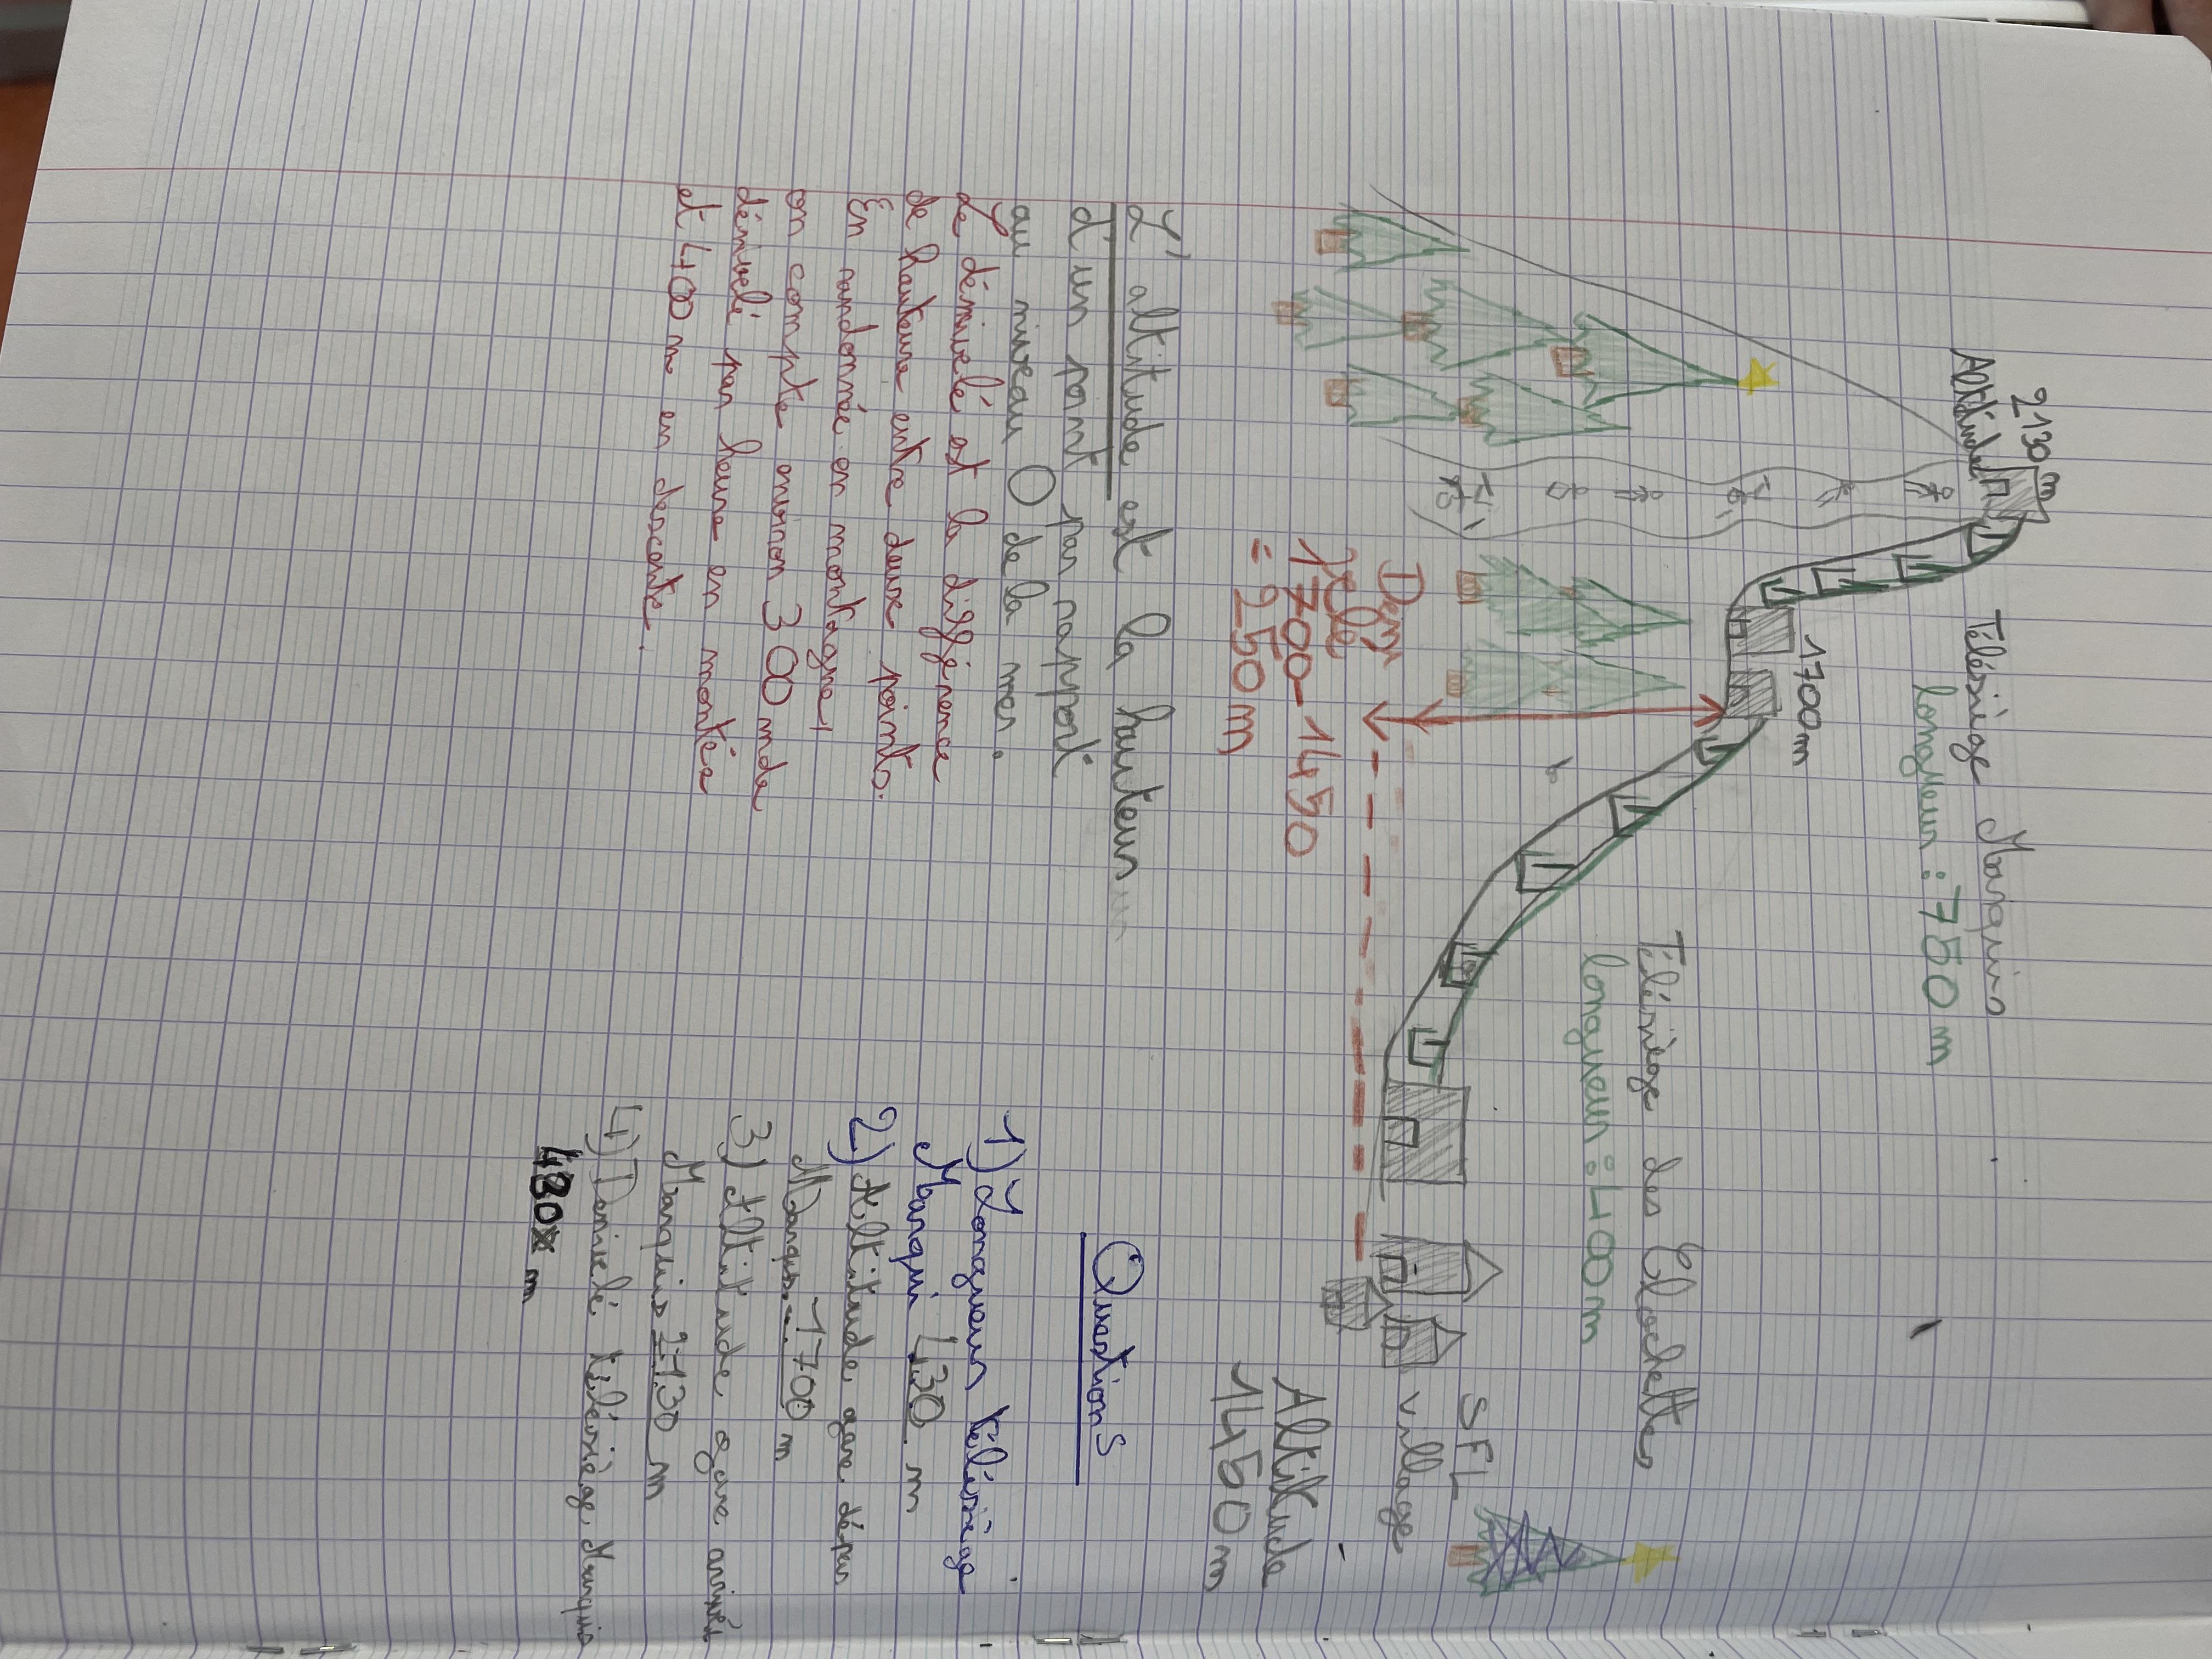 2130 m
Altitude
Télésiège Marquis
longueur : 750 m
1700 m
Télésiège des Clochettes
longueur : 400 m
SFL
village
Altitude
1450 m
Deni
velé
1700-1450
= 250 m
L'altitude est la hauteur
d'un point par rapport
au niveau 0 de la mer.
Le dénivelé est la différence
de hauteur entre deux points.
En randonnée en montagne,
on compte environ 300 m de
dénivelé par heure en montée
et 400 m en descente.
Questions
1) Longueur télésiège
Marqui 430 m
2) Altitude gare dépar
Marquis 1700 m
3) Altitude gare arrivée
Marquis 2130 m
4) Denivelé télésiège Marquis
430 m